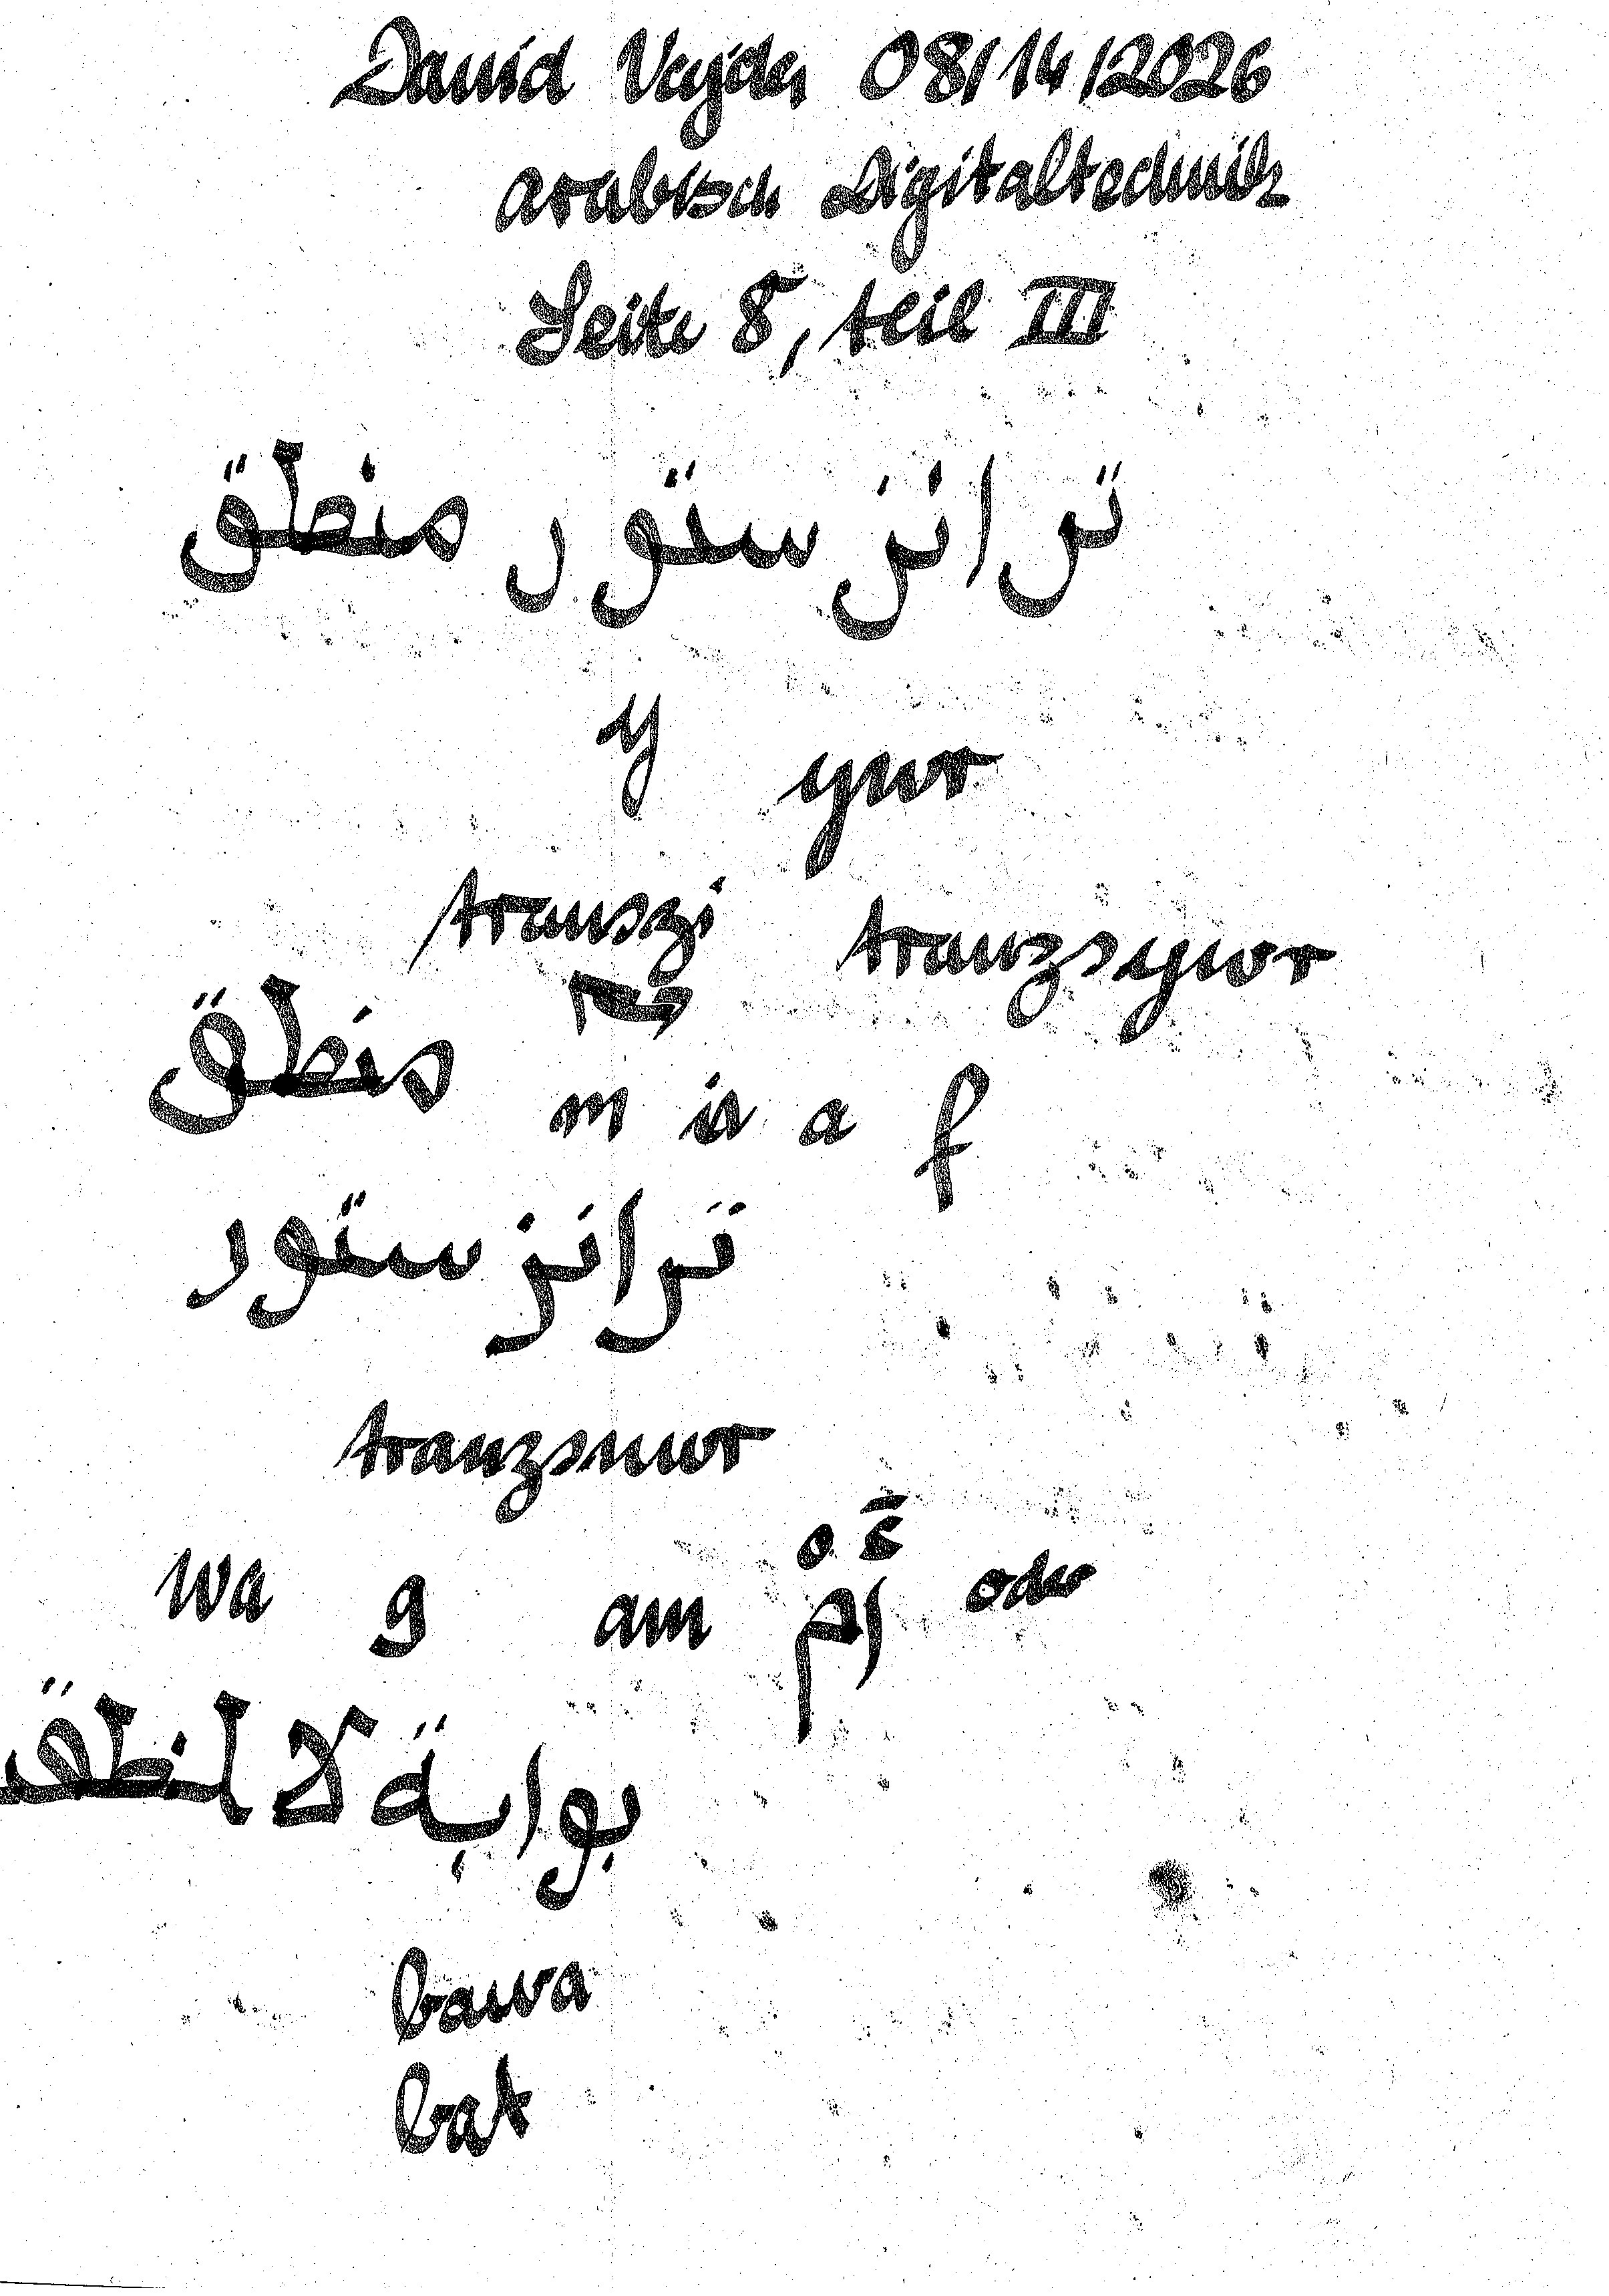 David Vajda 08/14/2026
arabisch Digitaltechnik
Seite 8, teil III
ترانزستور منطق
y ywr
transzi tranzsywr
منطق m in a f
ترانزستور
tranzsnwr
wa g am أم oder
بوابة لا لنطقـ
bawa
bat